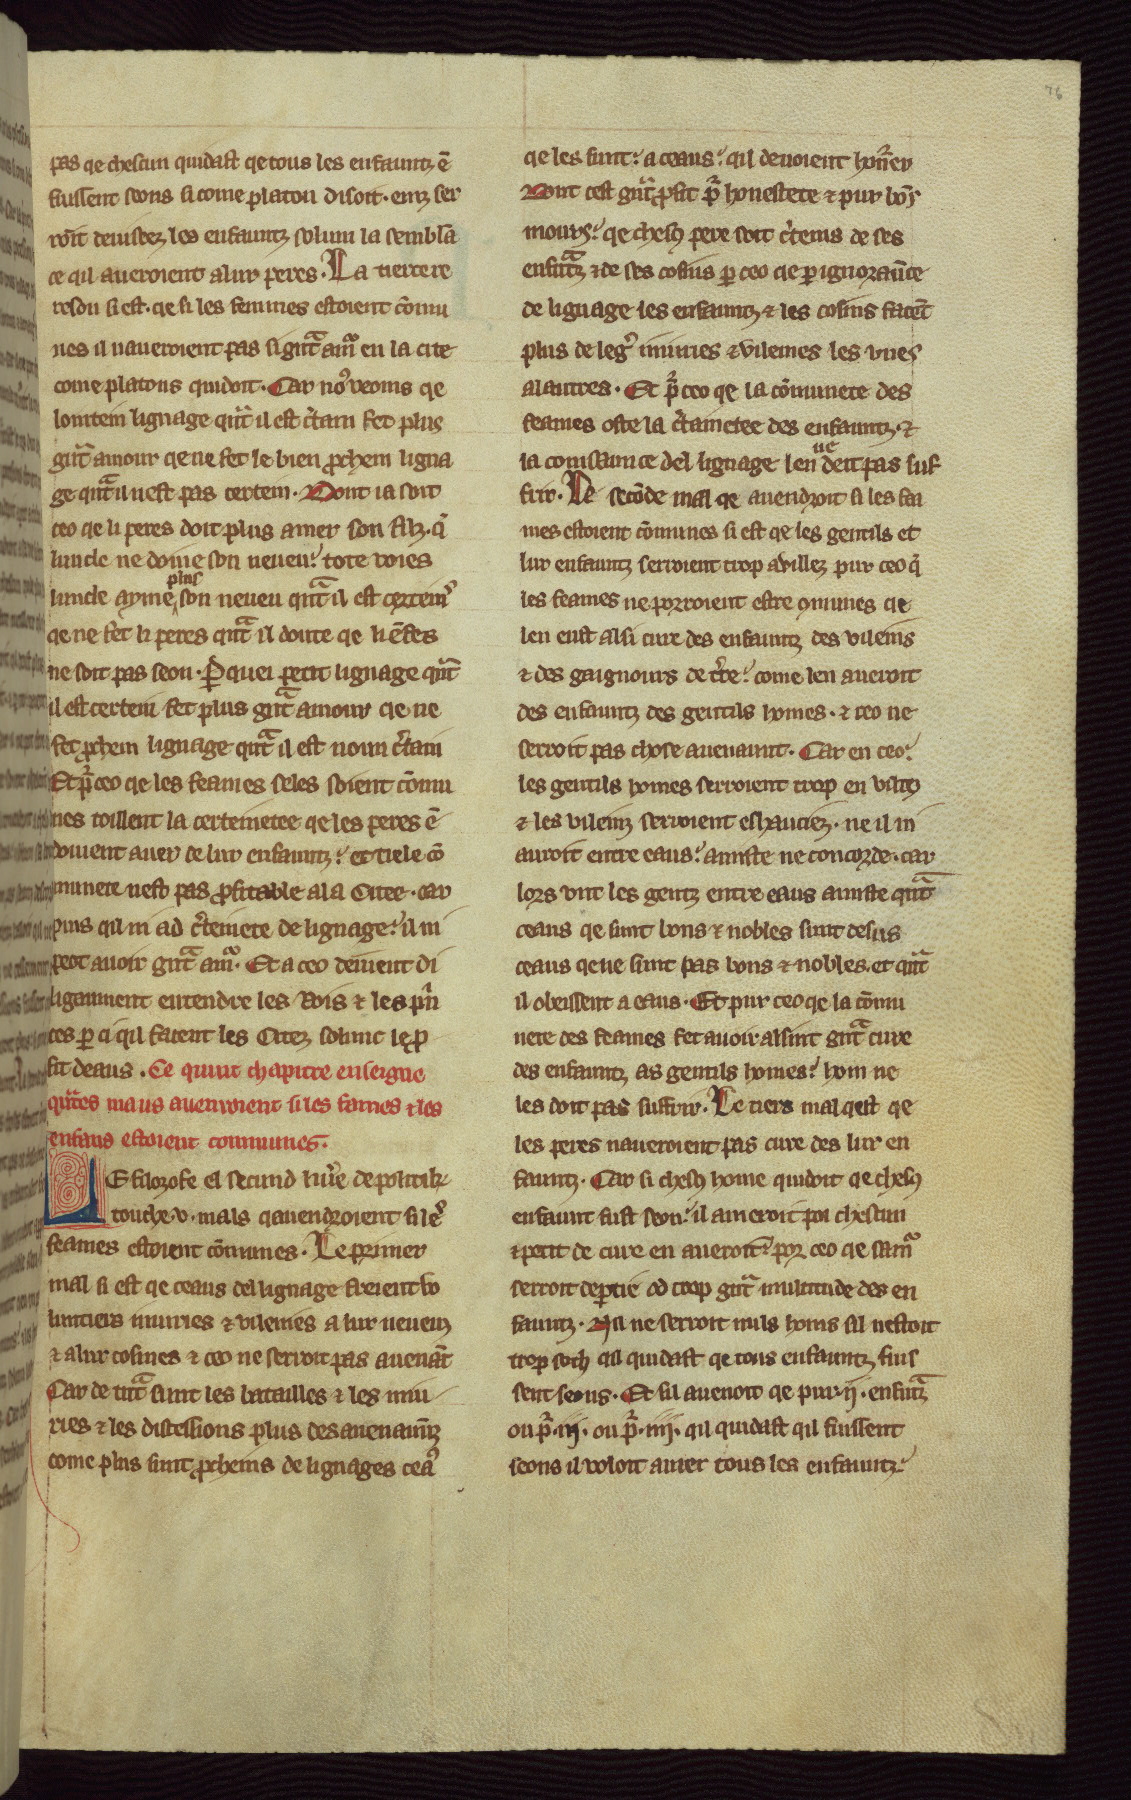 76
pas qe chescun quidast qe tous les enfauntz ē
fuissent seons si come platon disoit · einz ser
roit deuisez les enfauntz solum la semblā
ce qil aueroient a lur peres · La tierce re
reson si est · qe si les femmes estoient cōmu
nes il naueroient pas si gͣnt amͦ en la cite
come platons quidoit · Car noꝰ veoms qe
lointein lignage qͣnt il est c̄tain fet plus
gͣnt amour qe ne fet le bien ꝓchein ligna
ge qͣnt il nest pas certein · Dont ia soit
ceo qe li peres doit plus amer son filz · q̄
luncle ne doiue son neueu : tote voies
luncle ayme plus son neueu qͣnt il est certeinꝰ
qe ne fet li peres qͣnt il doute qe li ēfes
ne soit pas seon · P quei petit lignage qͣnt
il est certein fet plus gͣnt amour qe ne
fet ꝓchein lignage qͣnt il est noun c̄tain
Et pͬ ceo qe les feames seles soient cōmu
nes toillent la certeinetee qe les peres ē
doiuent auer de lur enfauntz : et tiele cō
munete nest pas ꝓfitable a la Citee · car
puis qil ni ad c̄teinete de lignage : il ni
peot auoir gͣnt amͦ · Et a ceo deiuent di
ligaument entendre les Rois & les pͥn
ces ꝑ ci qil facent les Citez solunc le ꝓ
fit deaus · Ce quint chapitre enseigne
qͣntes maus auenroient si les fames & les
enfans estoient communes ·
LE filozofe el secund liure de politik
touche · v · mals qauendroient si leꝰ
feames estoient cōmunes · Le primer
mal si est qe ceaus del lignage fereient vo
luntiers iniuries & vileinies a lur neueuz
& a lur cosines & ceo ne serroit pas auenāt
Car de tͣnt sunt les batailles & les iniu
ries & les discessions plus desauenantz
come plus sunt ꝓcheins de lignages ceaꝰ
qe les funt : a ceaus : qil deuoient honͬer
Dont cest gͣnt ꝓfit pͬ honestete & pur bōs
mours : qe chesꝯ pere soit c̄teins de ses
enfͣntz & de ses cosins ꝑ ceo qe ꝑ ignoraūce
de lignage les enfauntz & les cosins facēt
plus de legͬ iniuries & vileinies les vnes
a lautres · Et pͬ ceo qe la cōmunete des
feames oste la c̄tainetee des enfauntz · &
la conisaunce del lignage len ne deit pas suf
frir · Le secōde mal qe auendroit si les fea
mes estoient cōmunes si est qe les gentils et
lur enfauntz serroient trop avillez pur ceo q̄
les feames ne porroient estre ꝯmunes qe
len eust alsi cure des enfauntz des vileins
& des gaignours de t̄re : come len aueroit
des enfauntz des gentils homes · & ceo ne
serroit pas chose auenaunt · Car en ceo :
les gentils homes serroient trop en viltez
& les vileinz serroient eshauciez · ne il ni
auroit entre eaus : amiste ne concorde · car
lors vnt les gentz entre eaus amiste qͣnt
ceaus qe sunt bons & nobles sunt desus
ceaus qe ne sunt pas bons & nobles · et qͣnt
il obeissent a eaus · Et pur ceo qe la cōmu
nete des feames fet auoir alsint gͣnt cure
des enfauntz as gentils homes : hom ne
les doit pas suffrir · Le tiers mal qest qe
les peres naueroient pas cure des lur en
fauntz · Car si chesꝯ home quidoit qe chesꝯ
enfaunt fust seon : il ameroit poi chescun
& petit de cure en aueroit : pur ceo qe samͦ
serroit deꝑtie od trop gͣnt multitude des en
fauntz · Il ne serroit nuls homs sil nestoit
trop soth qil quidast qe tous enfauntz fuis
sent seons · Et sil auenoit qe pur · ij · enfͣntz
ou pͬ · iij · ou pͬ · iiij · qil quidast qil fuissent
seons il voloit amer tous les enfauntz :